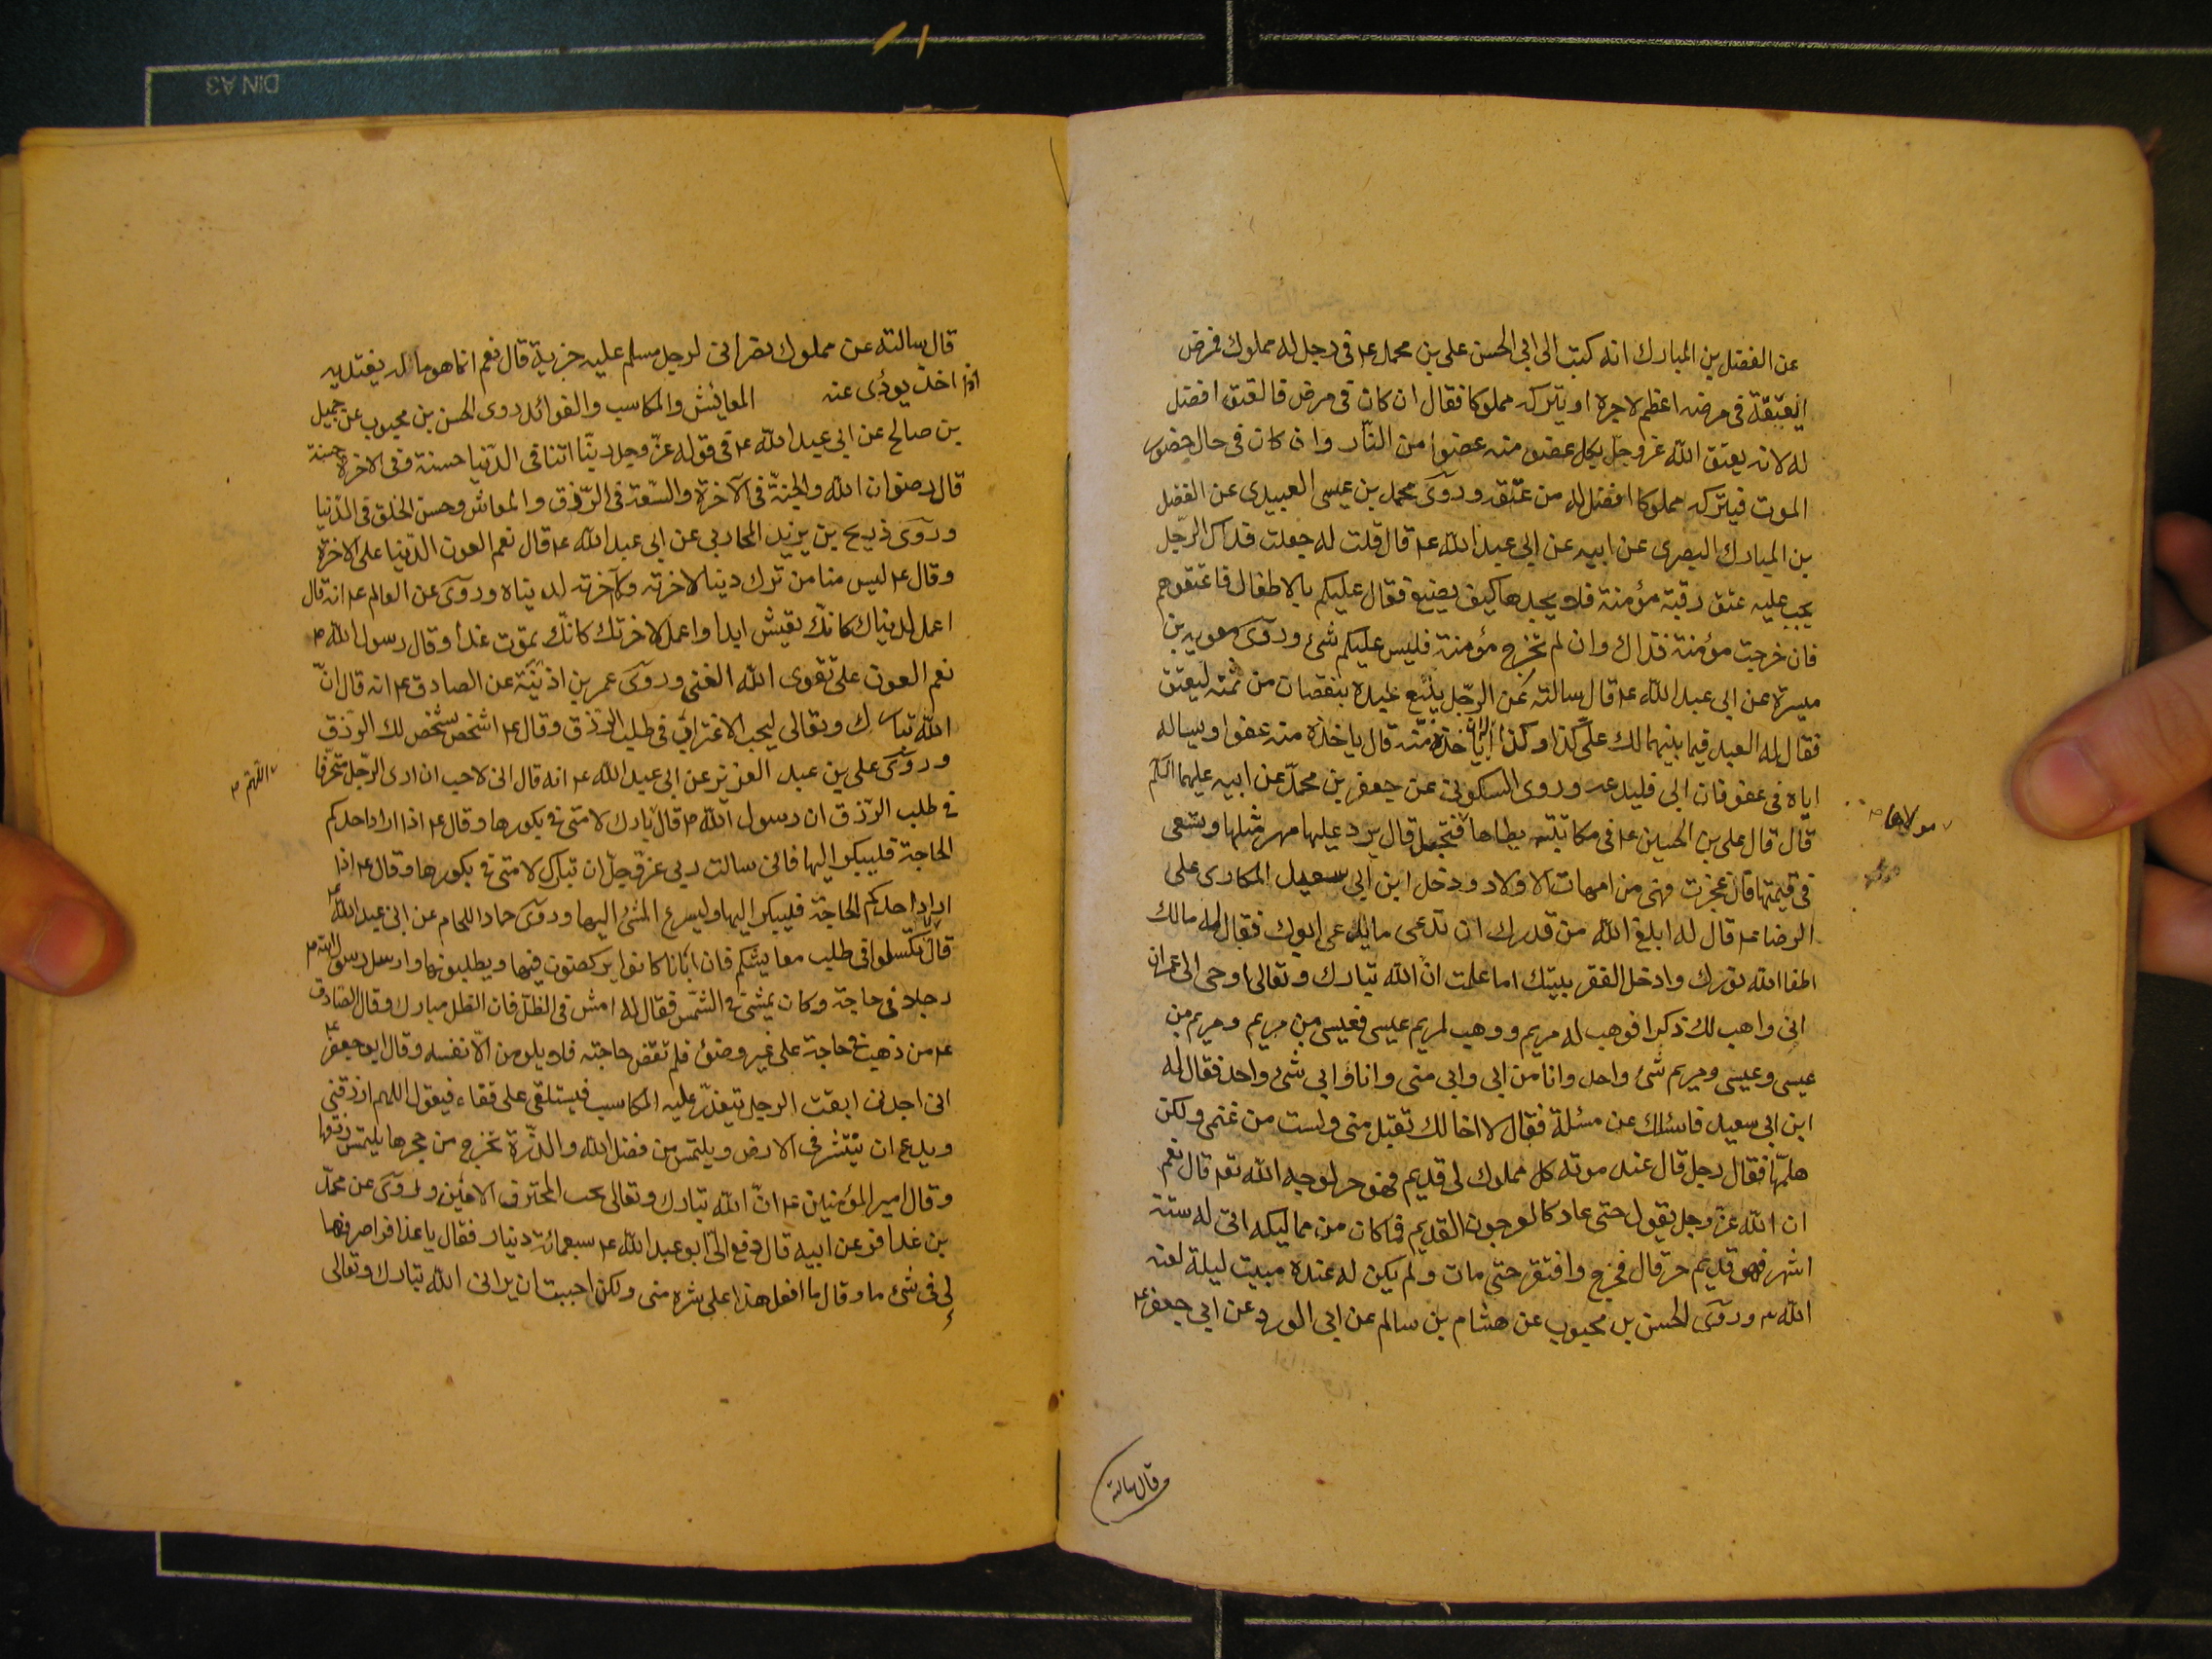 عن الفضل بن المبارك انه كتب الى ابى الحسن على بن محمد ع فى رجل له مملوك فمرض
ايعتقه فى مرضه اعظم لاجره او يتركه مملوكا فقال ان كان فى مرض فالعتق افضل
له لانه يعتق الله عز وجل بكل عضو منه عضوا من النّار وان كان فى حال حضور
الموت فيتركه مملوكا افضل له من عتقه وروى محمد بن عيسى العبيدى عن الفضل
بن المبارك البصرى عن ابيه عن ابى عبد الله ع قال قلت له جعلت فداك الرّجل
يجب عليه عتق رقبة مؤمنة فلا يجدها كيف يصنع فقال عليكم بالاطفال فاعتقوهم
فان خرجت مؤمنة فذاك وان لم تخرج مؤمنة فليس عليكم شئ وروى معوية بن
ميسرة عن ابى عبد الله ع قال سالته عن الرّجل يبيع عبده بنقصان من ثمنه ليعتق
فقال له العبد فيما بينهما لك علىّ كذا وكذا اياخذه منه قال ياخذه منه عفوا ويساله
ايّاه فى عفو فان ابى فليدعه وروى السكونى عن جعفر بن محمدّ عن ابيه عليهما السّلم
مولاها
قال قال على بن الحسين ع فى مكاتبته يطاها فتحمل قال يرد عليها مهر مثلها وتسعى
فى قيمتها فان عجزت فهى من امهات الاولاد ودخل ابن ابى سعيد المكارى على
الرضا ع قال له ابلغ الله من قدرك ان تدعى ما ادعى ابوك فقال له مالك
اطفا الله نورك وادخل الفقر بيتك اما علمت انّ الله تبارك وتعالى اوحى الى عمران
انى واهب لك ذكرا فوهب له مريم ووهب لمريم عيسى فعيسى من مريم ومريم من
عيسى وعيسى ومريم شئ واحد وانا من ابى وابى منى وانا وابى شئ واحد فقال له
ابن ابى سعيد فاسئلك عن مسئلة فقال لا اخالك تقبل منى ولست من غنمى ولكن
هلمّها فقال رجل قال عند موته كل مملوك لى قديم فهو حر لوجه الله تع قال نعم
ان الله عزّ وجل يقول حتى عاد كالعرجون القديم فما كان من مماليكه اتى له ستة
اشهر فهو قديم حر قال فخرج وافتقر حتى مات ولم يكن له عنده مبيت ليلة لعنه
الله وروى الحسن بن محبوب عن هشام بن سالم عن ابى الورد عن ابى جعفر ع
وقال سالته
قال سالته عن مملوك نصرانى لرجل مسلم عليه جزية قال نعم انما هو مالكه يفتديه
اذا اخذ يؤدى عنه المعايش والمكاسب والفوائد روى الحسن بن محبوب عن جميل
بن صالح عن ابى عبد الله ع فى قوله عزّ وجل ربّنا اتنا فى الدّنيا حسنة وفى الاخرة حسنة
قال رضوان الله والجنّة فى الآخرة والسّعة فى الرّزق والمعاش وحسن الخلق فى الدّنيا
وروى ذريح بن يزيد المحاربى عن ابى عبد الله ع قال نعم العون الدّنيا على الاخرة
وقال ع ليس منا من ترك دنياه لاخرته ولا آخرته لدنياه وروى عن العالم ع انه قال
اعمل لدنياك كانّك تعيش ابدا واعمل لاخرتك كانّك تموت غدا وقال رسول الله ص
نعم العون على تقوى الله الغنى وروى عمر بن اذينة عن الصادق ع انه قال انّ
الله تبارك وتعالى ليحب الاغتراب فى طلب الرّزق وقال ع اشخص يشخص لك الرّزق
وروى على بن عبد العزيز عن ابى عبد الله ع انه قال انى لاحب ان ارى الرّجل متحرّفا
اللّهم
فى طلب الرّزق ان رسول الله ص قال بارك لامتى فى بكورها وقال ع اذا اراد احدكم
الحاجة فليبكر اليها فانى سالت ربى عز وجلّ ان تبارك لامتى فى بكورها وقال ع اذا
اراد احدكم الحاجة فليبكر اليها وليسرع المشى اليها وروى حماد اللحام عن ابى عبد الله ع
قال لا تكسلوا فى طلب معايشكم فان ابائنا كانوا يركضون فيها ويطلبونها وارسل رسول الله ص
رجلا فى حاجة وكان يمشى فى الشمس فقال له امش فى الظلّ فان الظل مبارك وقال الصّادق
ع من ذهب فى حاجة على غير وضوء فلم تقض حاجته فلا يلومن الّا نفسه وقال ابو جعفر ع
انى اجدنى امقت الرجل يتعذر عليه المكاسب فيستلقى على قفاء فيقول اللهم ارزقنى
ويدع ان ينتشر فى الارض ويلتمس من فضل الله والذّرّة تخرج من حجرها يلتمس رزقها
وقال امير المؤمنين ع انّ الله تبارك وتعالى يحب المحترف الامين وروى عن محمدّ
بن عذافر عن ابيه قال دفع الىّ ابو عبد الله ع سبعمائة دينار فقال يا عذافر اصرفها
لى فى شئ ما وقال ما افعل هذا على شره منى ولكن احببت ان يرانى الله تبارك وتعالى